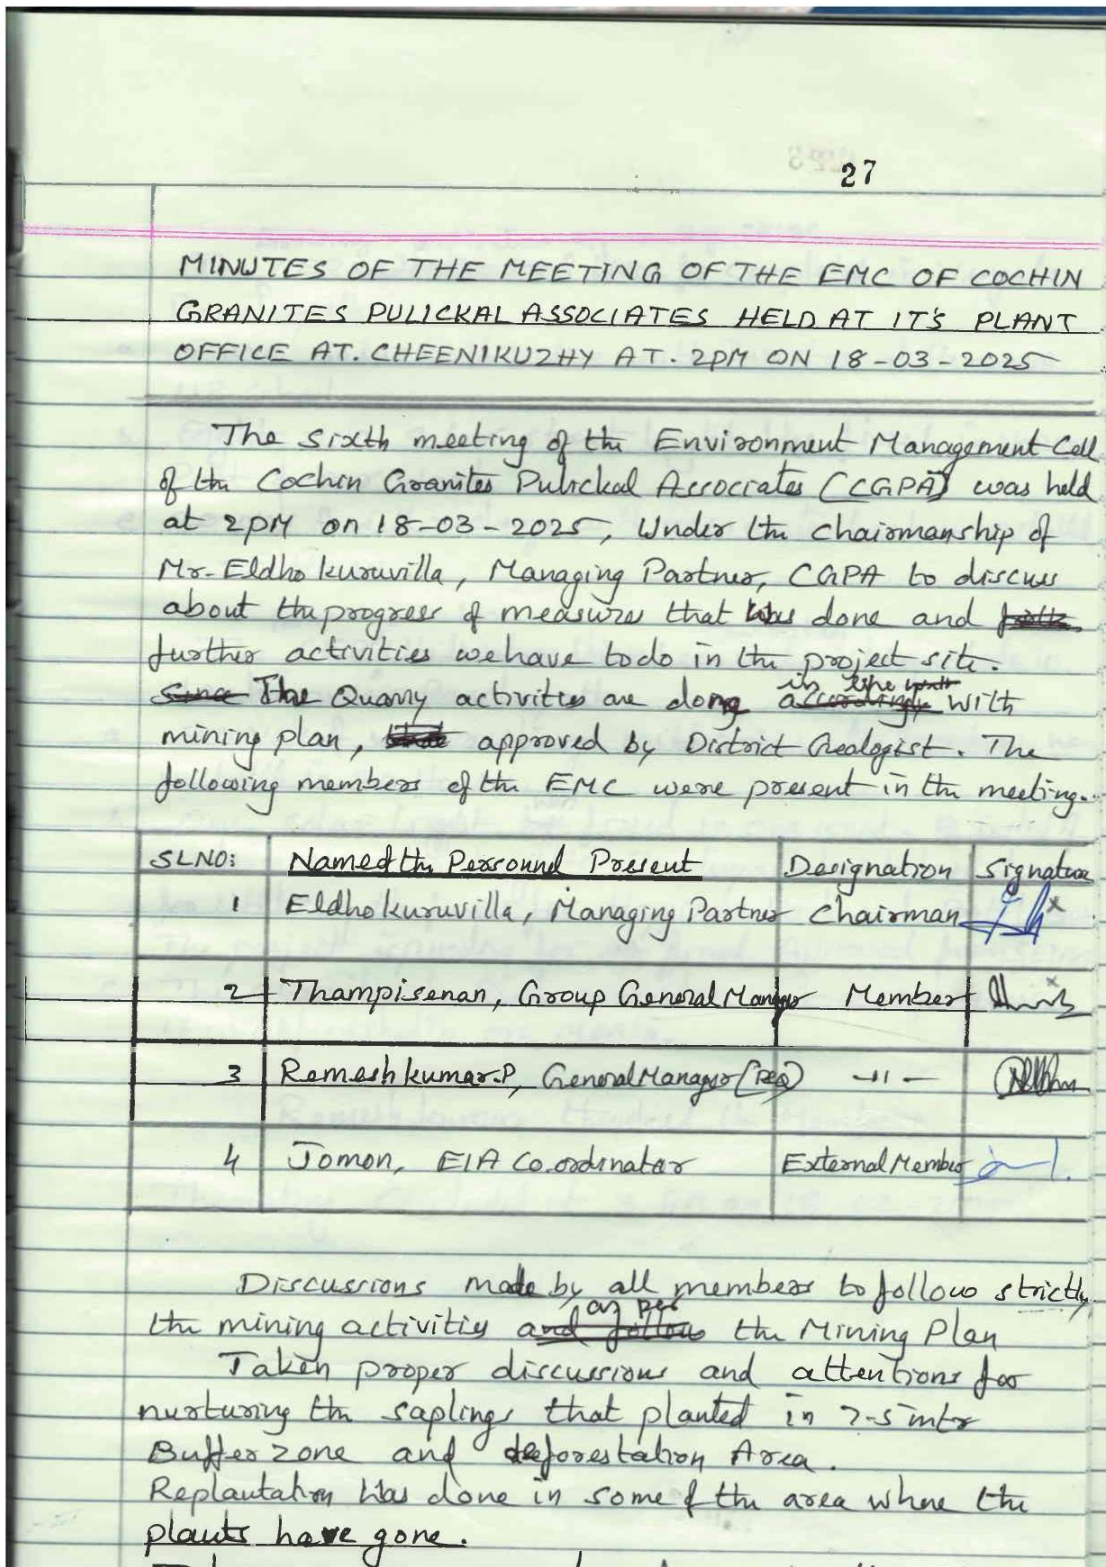 27
MINUTES OF THE MEETING OF THE EMC OF COCHIN
GRANITES PULICKAL ASSOCIATES HELD AT IT'S PLANT
OFFICE AT. CHEENIKUZHY AT. 2PM ON 18-03-2025
The sixth meeting of the Environment Management Cell
of the Cochin Granites Pulickal Associates (CGPA) was held
at 2PM on 18-03-2025, Under the Chairmanship of
Mr. Eldho kuruvilla, Managing Partner, CGPA to discuss
about the progress of measures that was done and
further activities we have to do in the project site.
Since The Quarry activities are done in line with
mining plan, approved by District Geologist. The
following members of the EMC were present in the meeting.
SLNO: Name of the Personnel Present Designation Signature
1 Eldho kuruvilla, Managing Partner Chairman
2 Thampisenan, Group General Manager Member
3 Remesh kumar.P, General Manager -11-
4 Jomon, EIA Co.ordinator External Member
Discussions made by all members to follow strictly
the mining activities and follow as per the Mining Plan
Taken proper discussions and attentions for
nurturing the saplings that planted in 7.5 mtr
Buffer zone and deforestation Area.
Replantation has done in some of the area where the
plants have gone.